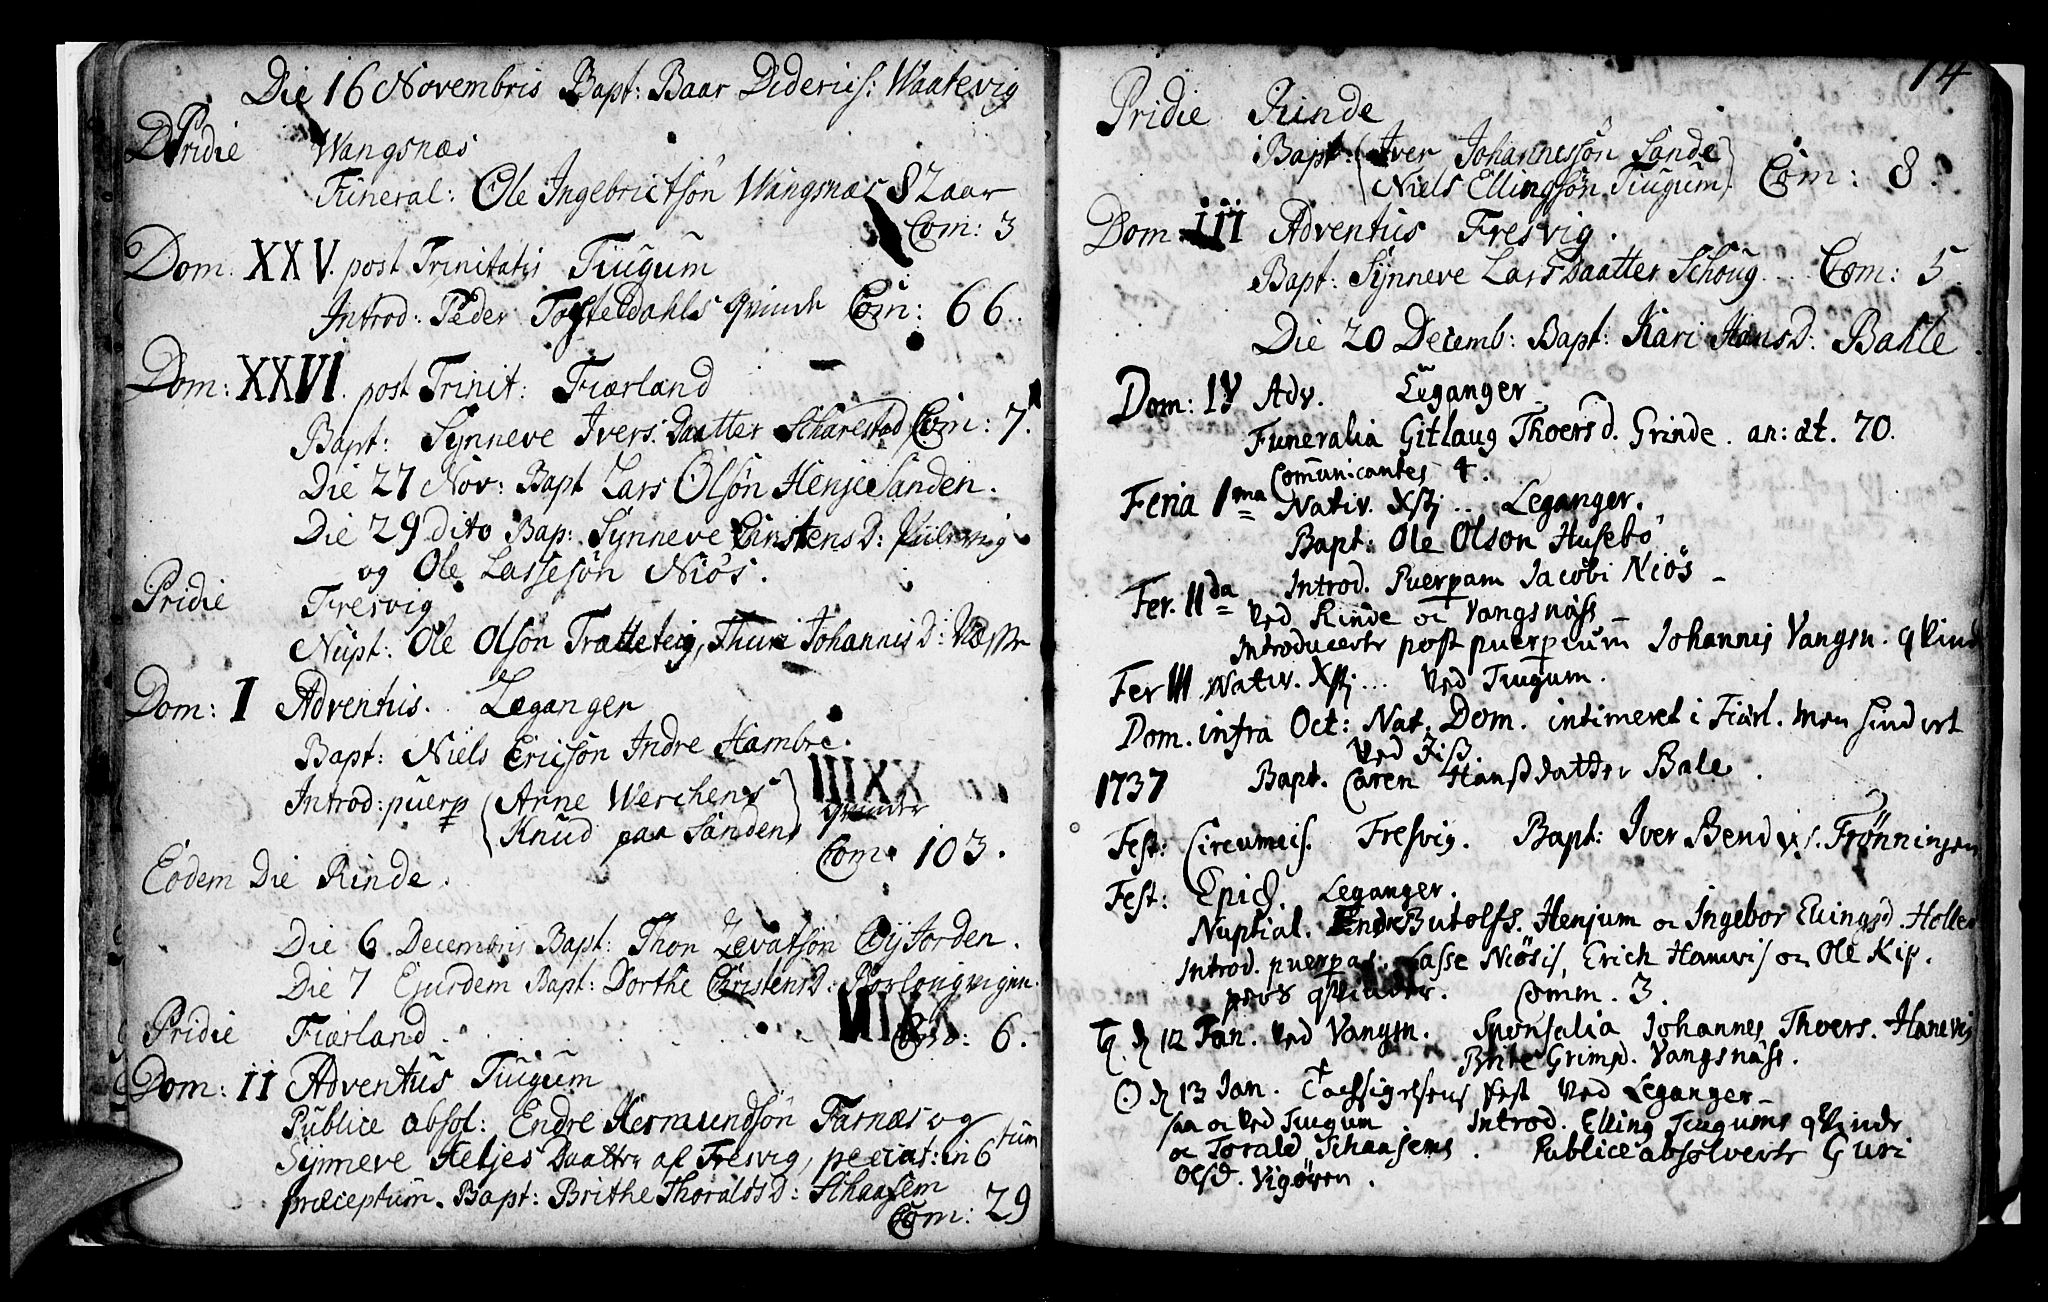 Die 16 Novembris Bapt: Baar Dideriks: Waatevig
Pridie Wangsnæs
Funeral: Ole Ingebrictsøn Wangsnæs 82 aar
Com: 3
Dom. XXV. post Trinitatis Tiugum
Introd: Peder Tostedahls qvinde Com: 66.
Dom: XXVI. post Trinit: Fiærland
Bapt: Synneve Ivers Daatter Scharestad Com: 7.
Die 27 Nov: Bapt Lars Olsøn Henje Sanden.
Die 29 dito Bap: Synneve Christens D:
og Ole Lassesøn Niøs.
Pridie Fresvig
Nupt: Ole Olsøn Trætteteig, Thuri Johannis D:
Dom: I Adventus. Leganger
Bapt: Niels Ericsøn Indre Hambre.
Introd: puerp (Arne Werchens
(Knud paa Sanden) qvinder
Com: 103.
Eodem Die Rinde.
Die 6 Decembris Bapt: Thon
Die 7 Ejusdem Bapt: Dorthe Christens D:
Pridie Fiærland Com: 6.
Dom: II Adventus Tiugum
Publice absol: Endre Hermundsøn Farnæs og
Synneve Heljes Daatter af Fresvig, peccat: in 6tum
præceptum. Bapt: Brithe Thoralds D: Schaasem
Com: 29
14
Pridie Rinde
Bapt: (Iver Johannessøn Sande
(Niels Ellingsøn Tiugum) Com: 8.
Dom: III Adventus Fresvig.
Bapt: Synneve Lars Daatter Schoug. Com: 5.
Die 20 Decemb: Bapt: Kari Hans D: Bahle.
Dom: IV Adv. Leganger
Funeralia Gitlaug Thoersd. Grinde. an: æt. 70.
Communicantes 4.
Feria 1ma Nativ. Xsti .. Leganger.
Bapt: Ole Olson Husebø
Introd. Puerpam Jacobi Niøs
Fer. IIda Ved Rinde oc Vangsnæss
Introducertr post puerperium Johannis Vangsn. qvind
Fer III Nativ. Xsti ... Ved Tiugum.
Dom. infra Oct: Nat. Dom. intimeret i Fiærl. men hindret
Ved Fisß
1737 Bapt. Caren Hansdatter Bale.
Fest: Circumcis. Fresvig. Bapt: Iver Bendixs. Frønningen
Fest: Epiph. Leganger.
Nuptial. Endre Butolfs. Henjum oc Ingebor Ellingsd. Holle
Introd. puerpas. Lasse Niøsis, Erich Hamris oc Ole
qvinder. Comm. 3.
d 12 Jan. Ved Vangsn. Sponsalia Johannes Thoers. Hanevig
Brite Grimsd. Vangsnæss.
d 13 Jan. Tacksigelsens Fest Ved Leganger
saa oc Ved Tiugum. Introd. Elling Tiugums qvinde
oc Torald Schaasems. Publice absolvertr Guri
Olsd. Vigøren.